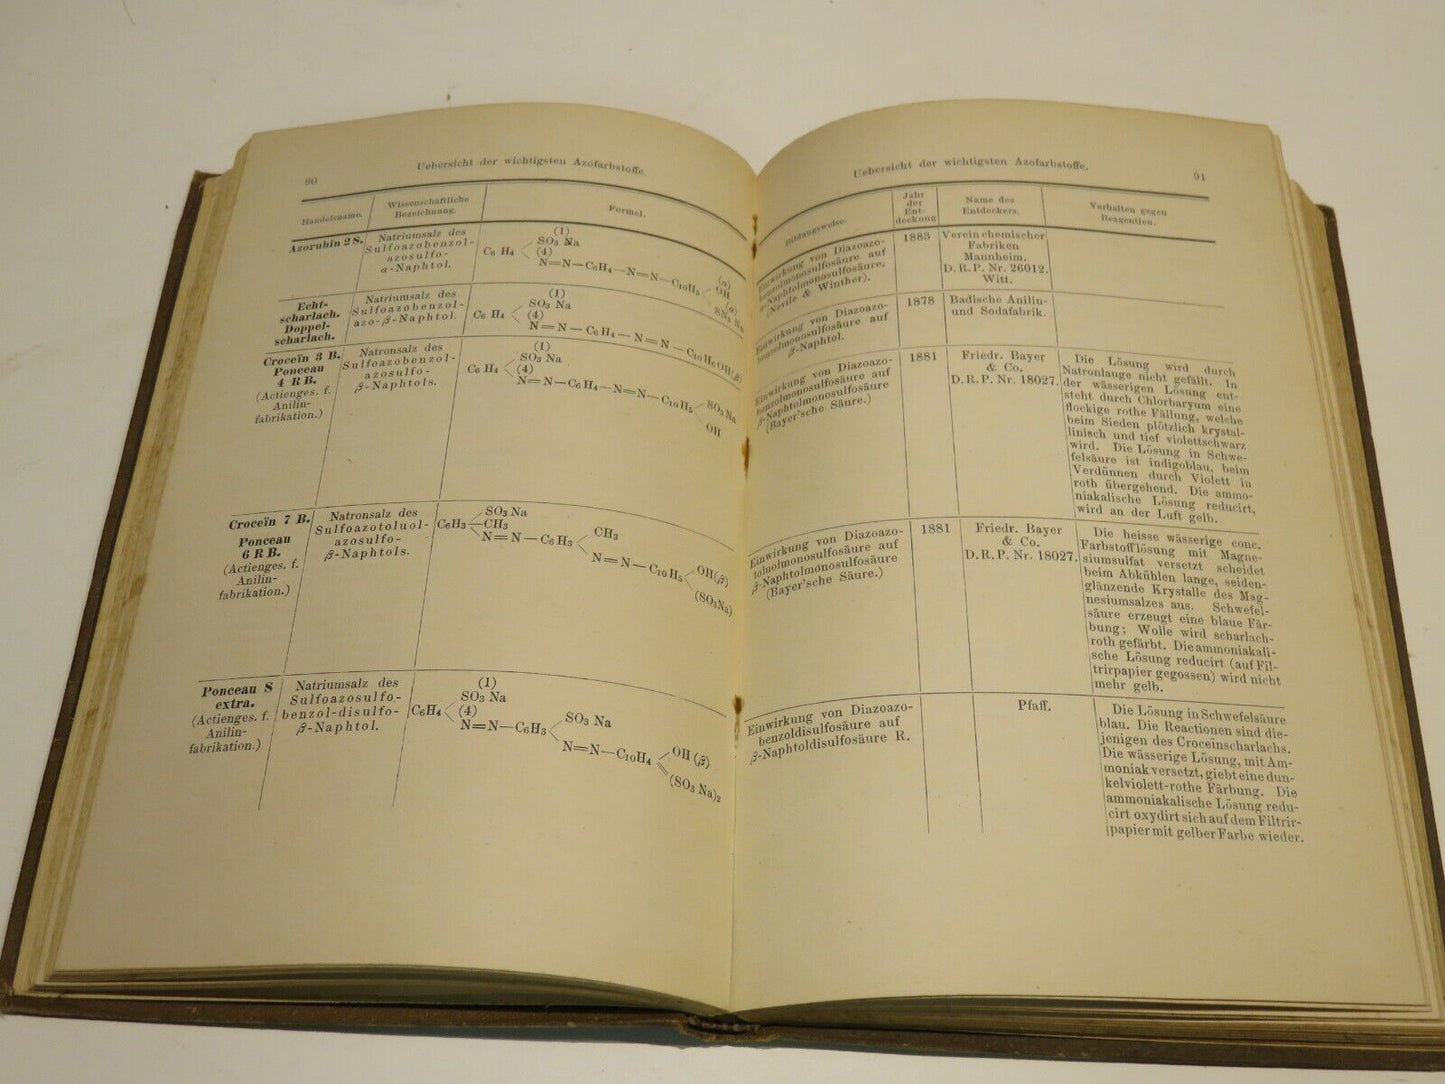 90
Uebersicht der wichtigsten Azofarbstoffe.
Handelsname.
Wissenschaftliche
Bezeichnung.
Formel.
Azorubin 2 S.
Natriumsalz des
Sulfoazobenzol-
azosulfo-
α-Naphtol.
(1)
SO3 Na
C6 H4
(4)
N=N—C6H4—N=N—C10H5
(α)
OH
(α)
Echt-
scharlach.
Doppel-
scharlach.
Natriumsalz des
Sulfoazobenzol-
azo-β-Naphtol.
(1)
SO3 Na
C6 H4
(4)
N=N—C6H4—N=N—C10H6 OH(β)
Croceïn 3 B.
Ponceau
4 R B.
(Actienges. f.
Anilin-
fabrikation.)
Natronsalz des
Sulfoazobenzol-
azosulfo-
β-Naphtols.
(1)
SO3 Na
C6 H4
(4)
N=N—C6H4—N=N—C10H5
SO3 Na
OH
Croceïn 7 B.
Ponceau
6 R B.
(Actienges. f.
Anilin-
fabrikation.)
Natronsalz des
Sulfoazotoluol-
azosulfo-
β-Naphtols.
SO3 Na
C6H3—CH3
N=N—C6H3
CH3
N=N—C10H5
OH(β)
(SO3Na)
Ponceau S
extra.
(Actienges. f.
Anilin-
fabrikation.)
Natriumsalz des
Sulfoazosulfo-
benzol-disulfo-
β-Naphtol.
(1)
SO3 Na
C6H4
(4)
N=N—C6H3
SO3 Na
N=N—C10H4
OH (β)
(SO3 Na)2
Uebersicht der wichtigsten Azofarbstoffe.
91
Bildungsweise.
Jahr
der
Ent-
deckung
Name des
Entdeckers.
Verhalten gegen
Reagentien.
Einwirkung von Diazoazo-
benzolmonosulfosäure auf
α-Naphtolmonosulfosäure.
(Nevile & Winther).
1883
Verein chemischer
Fabriken
Mannheim.
D. R. P. Nr. 26012.
Witt.
Einwirkung von Diazoazo-
benzolmonosulfosäure auf
β-Naphtol.
1878
Badische Anilin-
und Sodafabrik.
Einwirkung von Diazoazo-
benzolmonosulfosäure auf
β-Naphtolmonosulfosäure
(Bayer'sche Säure.)
1881
Friedr. Bayer
& Co.
D. R. P. Nr. 18027.
Die Lösung wird durch
Natronlauge nicht gefällt. In
der wässerigen Lösung ent-
steht durch Chlorbaryum eine
flockige rothe Fällung, welche
beim Sieden plötzlich krystal-
linisch und tief violettschwarz
wird. Die Lösung in Schwe-
felsäure ist indigoblau, beim
Verdünnen durch Violett in
roth übergehend. Die ammo-
niakalische Lösung reducirt,
wird an der Luft gelb.
Einwirkung von Diazoazo-
toluolmonosulfosäure auf
β-Naphtolmonosulfosäure
(Bayer'sche Säure.)
1881
Friedr. Bayer
& Co.
D. R. P. Nr. 18027.
Die heisse wässerige conc.
Farbstofflösung mit Magne-
siumsulfat versetzt scheidet
beim Abkühlen lange, seiden-
glänzende Krystalle des Mag-
nesiumsalzes aus. Schwefel-
säure erzeugt eine blaue Fär-
bung; Wolle wird scharlach-
roth gefärbt. Die ammoniakali-
sche Lösung reducirt (auf Fil-
trirpapier gegossen) wird nicht
mehr gelb.
Einwirkung von Diazoazo-
benzoldisulfosäure auf
β-Naphtoldisulfosäure R.
Pfaff.
Die Lösung in Schwefelsäure
blau. Die Reactionen sind die-
jenigen des Croceïnscharlachs.
Die wässerige Lösung, mit Am-
moniak versetzt, giebt eine dun-
kelviolett-rothe Färbung. Die
ammoniakalische Lösung redu-
cirt oxydirt sich auf dem Filtrir-
papier mit gelber Farbe wieder.